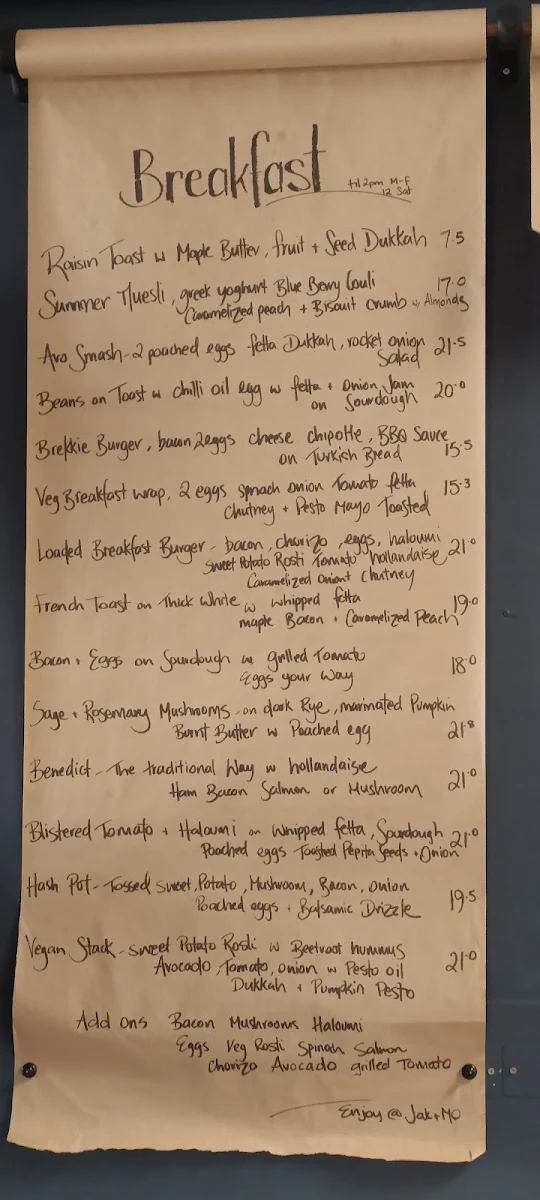 Breakfast
til 2pm M-F
12 Sat
Raisin Toast w Maple Butter, fruit + Seed Dukkah 7.5
Summer Muesli, greek yoghurt Blue Berry Couli 17.0
Caramelized peach + Biscuit crumb w Almonds
Avo Smash - 2 poached eggs fetta Dukkah, rocket onion 21.5
Salad
Beans on Toast w chilli oil egg w fetta + Onion Jam 20.0
on Sourdough
Brekkie Burger, bacon 2eggs cheese chipotle, BBQ Sauce
on Turkish Bread 15.5
Veg Breakfast wrap, 2 eggs spinach onion Tomato fetta 15.3
Chutney + Pesto Mayo Toasted
Loaded Breakfast Burger - bacon, chorizo, eggs, haloumi
Sweet Potato Rosti Tomato hollandaise 21.0
Caramelized Onion + Chutney
French Toast on Thick White w whipped fetta 19.0
maple Bacon + Caromelized Peach
Bacon + Eggs on Sourdough w grilled Tomato 18.0
Eggs your Way
Sage + Rosemary Mushrooms - on dark Rye, marinated Pumpkin
Burnt Butter w Poached egg 21.8
Benedict - The traditional Way w hollandaise 21.0
Ham Bacon Salmon or Mushroom
Blistered Tomato + Haloumi on Whipped fetta, Sourdough 21.0
Poached eggs Toasted Pepita Seeds + Onion
Hash Pot - Tossed sweet Potato, Mushroom, Bacon, onion 19.5
Poached eggs + Balsamic Drizzle
Vegan Stack - sweet Potato Rosti w Beetroot hummus
Avocado, Tomato, onion w Pesto oil 21.0
Dukkah + Pumpkin Pesto
Add Ons Bacon Mushrooms Haloumi
Eggs Veg Rosti Spinah Salmon
Chorizo Avocado grilled Tomato
Enjoy @ Jak+Mo